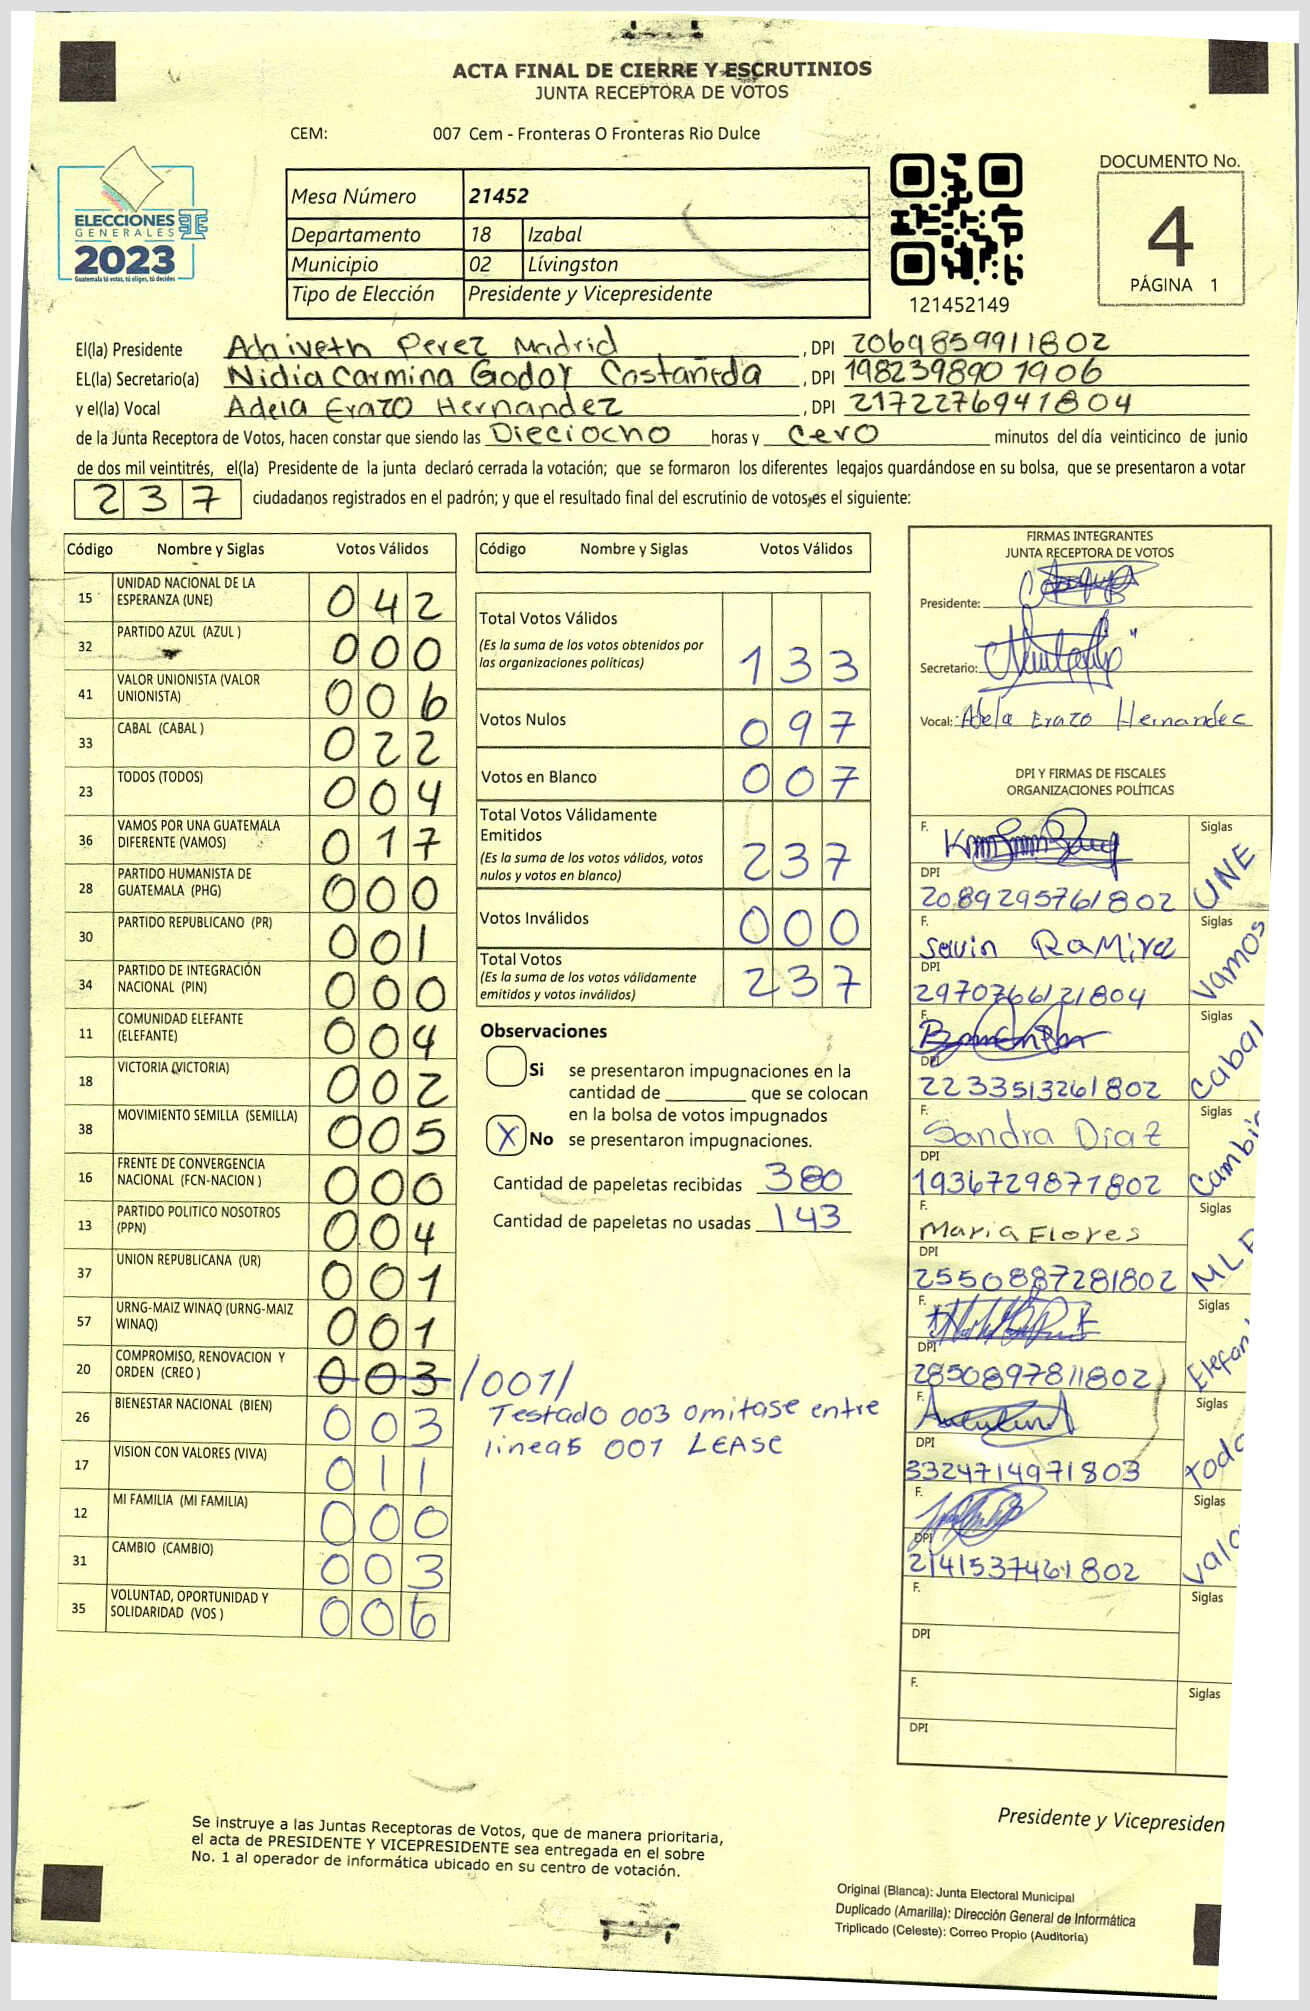 ACTA FINAL DE CIERRE Y ESCRUTINIOS
JUNTA RECEPTORA DE VOTOS
CEM: 007 Cem - Fronteras O Fronteras Rio Dulce
ELECCIONES
GENERALES
2023
Guatemala tú votas, tú eliges, tú decides
Mesa Número 21452
Departamento 18 Izabal
Municipio 02 Lívingston
Tipo de Elección Presidente y Vicepresidente
121452149
DOCUMENTO No.
4
PÁGINA 1
El(la) Presidente Adhiveth Perez Madrid , DPI 2069859911802
EL(la) Secretario(a) Nidia Carmina Godoy Castañeda , DPI 1982398901906
y el(la) Vocal Adela Erazo Hernandez , DPI 2172276941804
de la Junta Receptora de Votos, hacen constar que siendo las Dieciocho horas y cero minutos del día veinticinco de junio
de dos mil veintitrés, el(la) Presidente de la junta declaró cerrada la votación; que se formaron los diferentes legajos guardándose en su bolsa, que se presentaron a votar
237 ciudadanos registrados en el padrón; y que el resultado final del escrutinio de votos es el siguiente:
Código Nombre y Siglas Votos Válidos
15 UNIDAD NACIONAL DE LA ESPERANZA (UNE) 042
32 PARTIDO AZUL (AZUL ) 000
41 VALOR UNIONISTA (VALOR UNIONISTA) 006
33 CABAL (CABAL ) 022
23 TODOS (TODOS) 004
36 VAMOS POR UNA GUATEMALA DIFERENTE (VAMOS) 017
28 PARTIDO HUMANISTA DE GUATEMALA (PHG) 000
30 PARTIDO REPUBLICANO (PR) 001
34 PARTIDO DE INTEGRACIÓN NACIONAL (PIN) 000
11 COMUNIDAD ELEFANTE (ELEFANTE) 004
18 VICTORIA (VICTORIA) 002
38 MOVIMIENTO SEMILLA (SEMILLA) 005
16 FRENTE DE CONVERGENCIA NACIONAL (FCN-NACION ) 000
13 PARTIDO POLITICO NOSOTROS (PPN) 004
37 UNION REPUBLICANA (UR) 001
57 URNG-MAIZ WINAQ (URNG-MAIZ WINAQ) 001
20 COMPROMISO, RENOVACION Y ORDEN (CREO ) 003 /001/
Testado 003 omitase entre
lineas 001 LEASE
26 BIENESTAR NACIONAL (BIEN) 003
17 VISION CON VALORES (VIVA) 011
12 MI FAMILIA (MI FAMILIA) 000
31 CAMBIO (CAMBIO) 003
35 VOLUNTAD, OPORTUNIDAD Y SOLIDARIDAD (VOS ) 006
Código Nombre y Siglas Votos Válidos
Total Votos Válidos
(Es la suma de los votos obtenidos por
las organizaciones políticas) 133
Votos Nulos 097
Votos en Blanco 007
Total Votos Válidamente
Emitidos
(Es la suma de los votos válidos, votos
nulos y votos en blanco) 237
Votos Inválidos 000
Total Votos
(Es la suma de los votos válidamente
emitidos y votos inválidos) 237
Observaciones
Si se presentaron impugnaciones en la
cantidad de ________ que se colocan
en la bolsa de votos impugnados
X No se presentaron impugnaciones.
Cantidad de papeletas recibidas 380
Cantidad de papeletas no usadas 143
FIRMAS INTEGRANTES
JUNTA RECEPTORA DE VOTOS
Presidente:
Secretario:
Vocal: Adela Erazo Hernandec
DPI Y FIRMAS DE FISCALES
ORGANIZACIONES POLÍTICAS
F. Siglas UNE
DPI
2089295761802
F. Savin Ramirez Siglas Vamos
DPI
2970766121804
F. Siglas Cabal
DPI
2233513261802
F. Sandra Díaz Siglas Cambi
DPI
1936729871802
F. Maria Flores Siglas MLP
DPI
2550887281802
F. Siglas Elefan
DPI
2850897811802
F. Siglas todo
DPI
3324714971803
F. Siglas Valo
DPI
2141537461802
F. Siglas
DPI
F. Siglas
DPI
Se instruye a las Juntas Receptoras de Votos, que de manera prioritaria,
el acta de PRESIDENTE Y VICEPRESIDENTE sea entregada en el sobre
No. 1 al operador de informática ubicado en su centro de votación.
Presidente y Vicepresiden
Original (Blanca): Junta Electoral Municipal
Duplicado (Amarilla): Dirección General de Informática
Triplicado (Celeste): Correo Propio (Auditoria)